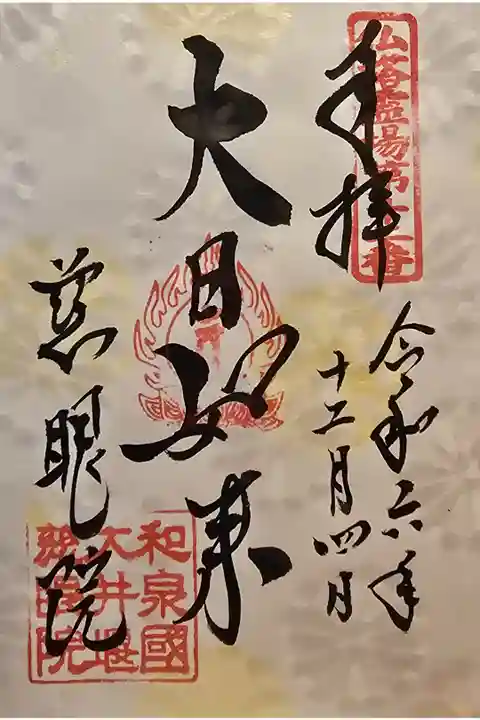 奉拝
仏塔霊場第
番
令和六年
十二月四日
大日如来
慈眼院
和泉國
大井堰
慈眼院